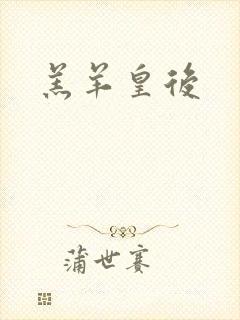 羔羊皇後
蒲世賽